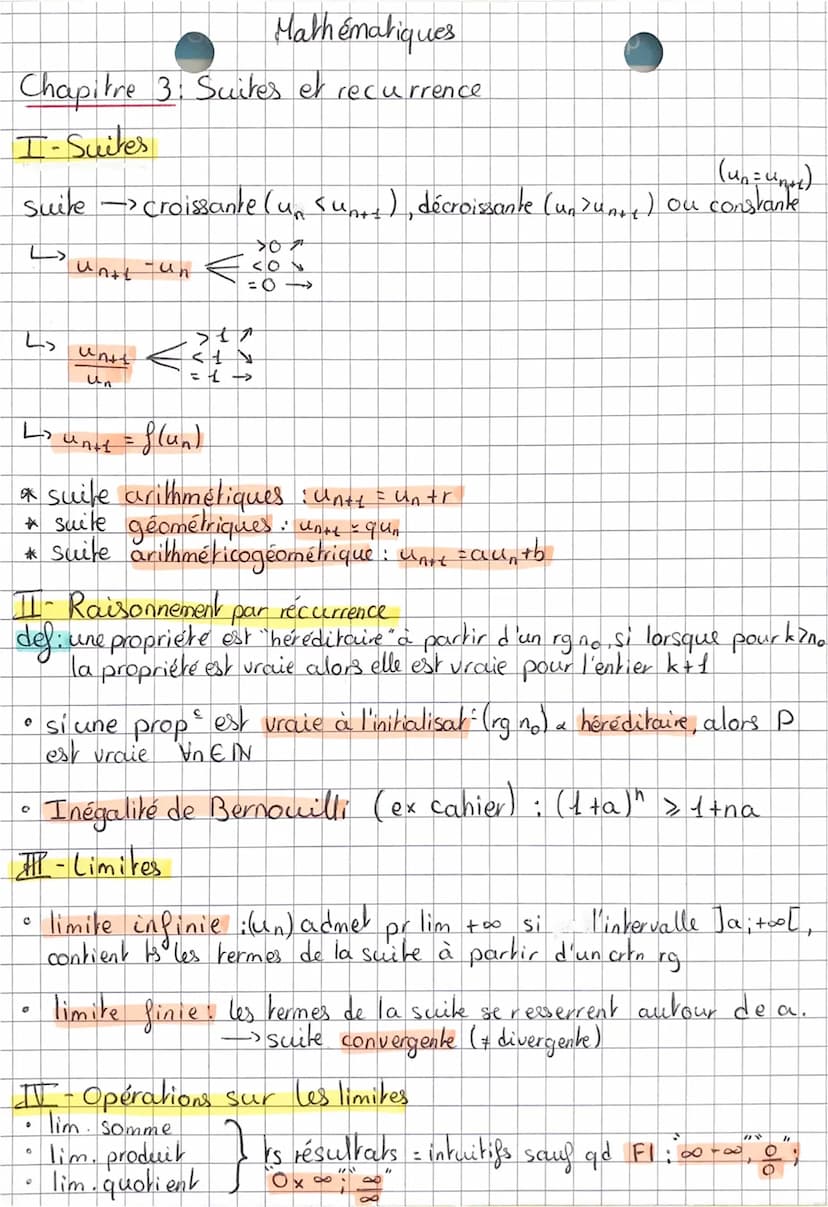 Mathématiques
Chapitre 3: Suites et recurrence
I - Suites
(uₙ = uₙ₊₁)
suite → croissante (uₙ < uₙ₊₁), décroissante (uₙ > uₙ₊₁) ou constante
↳ uₙ₊₁ - uₙ
>0 ↗
<0 ↘
=0 →
↳ uₙ₊₁/uₙ
>1 ↗
<1 ↘
=1 →
↳ uₙ₊₁ = f(uₙ)
* suite arithmétiques : uₙ₊₁ = uₙ + r
* suite géométriques : uₙ₊₁ = quₙ
* suite arithméticogéométrique : uₙ₊₁ = auₙ + b
II - Raisonnement par récurrence
def : une propriété est "héréditaire" à partir d'un rg n₀, si lorsque pour k ≥ n₀
la propriété est vraie alors elle est vraie pour l'entier k+1
• si une propᵉ est vraie à l'initialisat° (rg n₀) & héréditaire, alors P
est vraie ∀n ∈ ℕ
• Inégalité de Bernouilli (ex cahier) : (1+a)ⁿ ≥ 1+na
III - Limites
• limite infinie : (uₙ) admet pr lim +∞ si l'intervalle ]a;+∞[,
contient ts les termes de la suite à partir d'un crtn rg
• limite finie : les termes de la suite se resserrent autour de a.
→ suite convergente (≠ divergente)
IV - Opérations sur les limites
• lim. somme
• lim. produit
• lim. quotient
ts résultats = intuitifs sauf qd FI : "∞ - ∞", "0/0";
"0 x ∞"; "∞/∞"